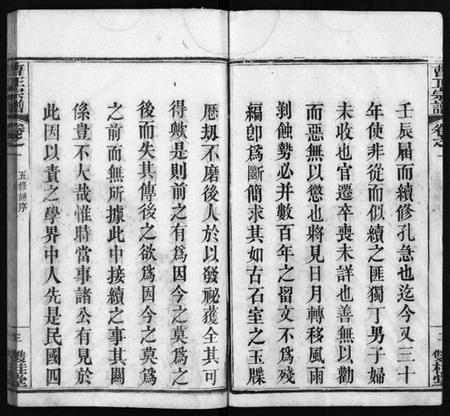 曹氏宗譜
卷之一
三
雙桂堂
壬辰屆而續修孔急也迄今又三十
年使非從而似續之匪獨丁男子婦
未收也官遷卒喪未詳也善無以勸
而惡無以懲也將見日月轉移風雨
剝蝕勢必并數百年之留文不爲殘
編卽爲斷簡求其如古石室之玉牒
歷刼不磨後人於以發祕獲全其可
得歟是則前之有爲因今之莫爲爲
後而失其傳後之欲爲因今之莫爲
之前而無所據此中接續之事其關
係豈不大哉惟時當事諸公有見於
此因以責之學界中人先是民國四
曹氏宗譜
卷之一
五修譜序
三
雙桂堂